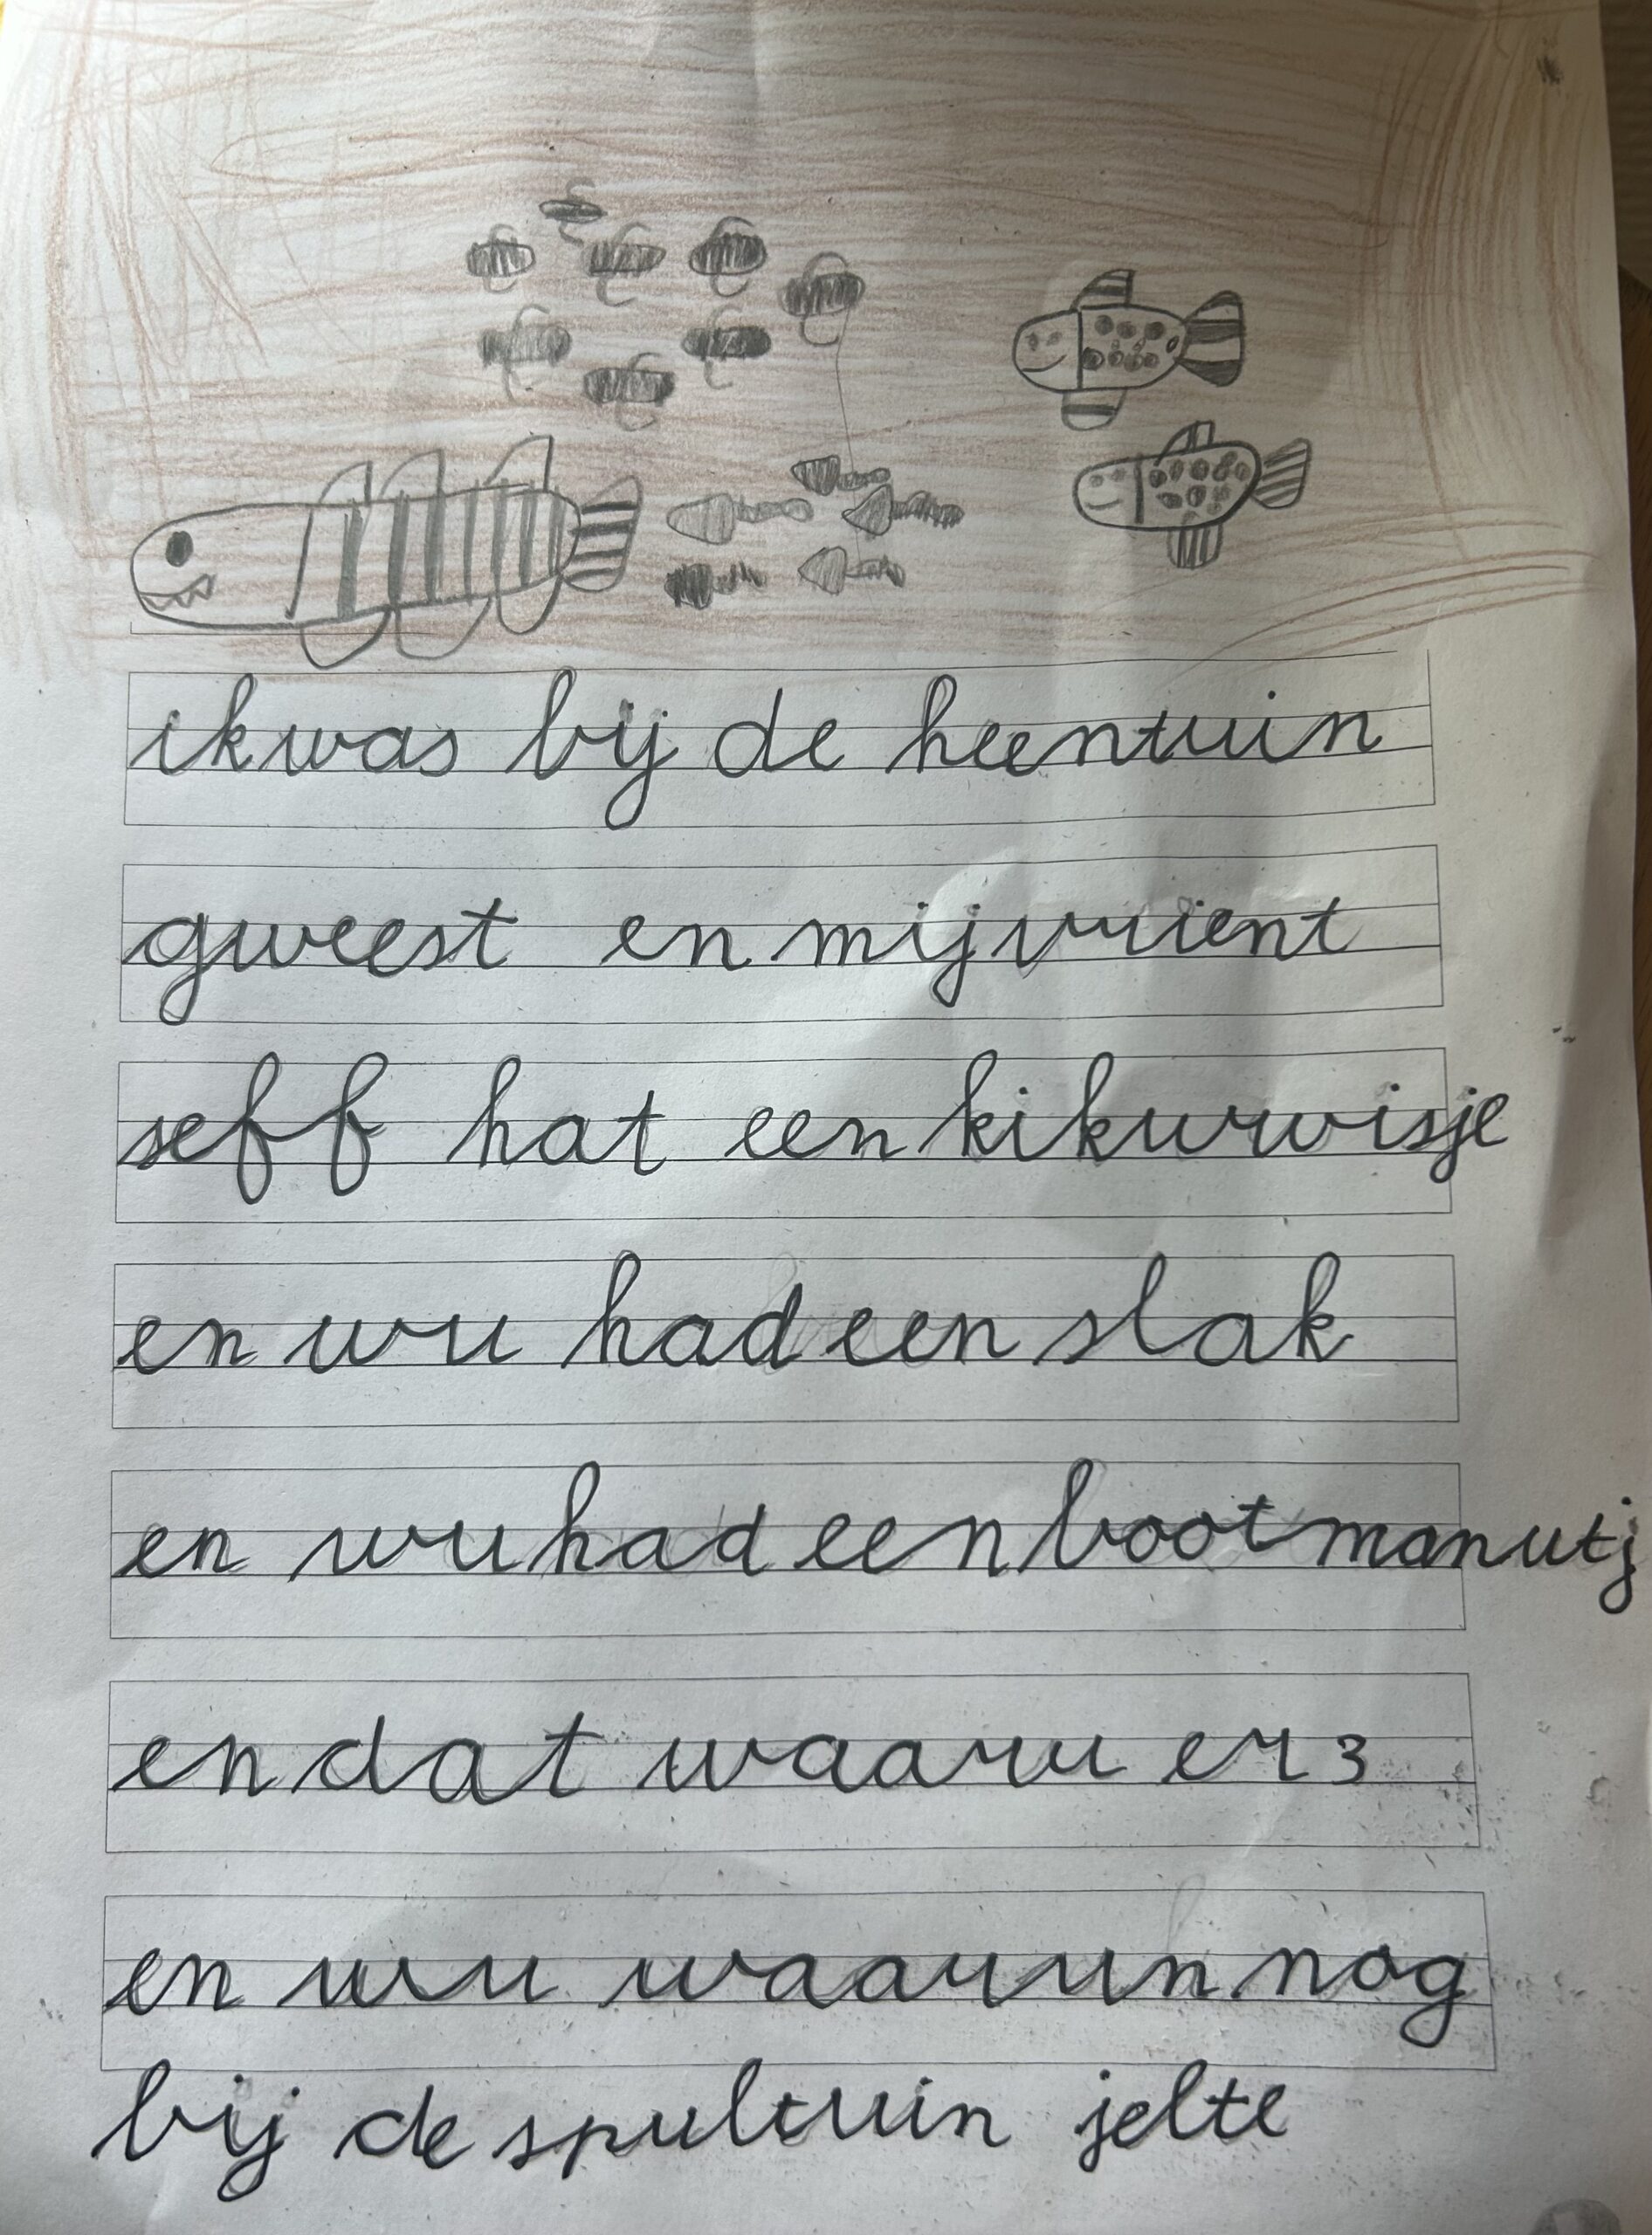 ik was bij de heentuin
gweest en mij vrient
seff hat een kikurvisje
en wu had een slak
en wu had een bootmanutj
en dat waaru er 3
en wu waarun nog
bij de spultuin jelte